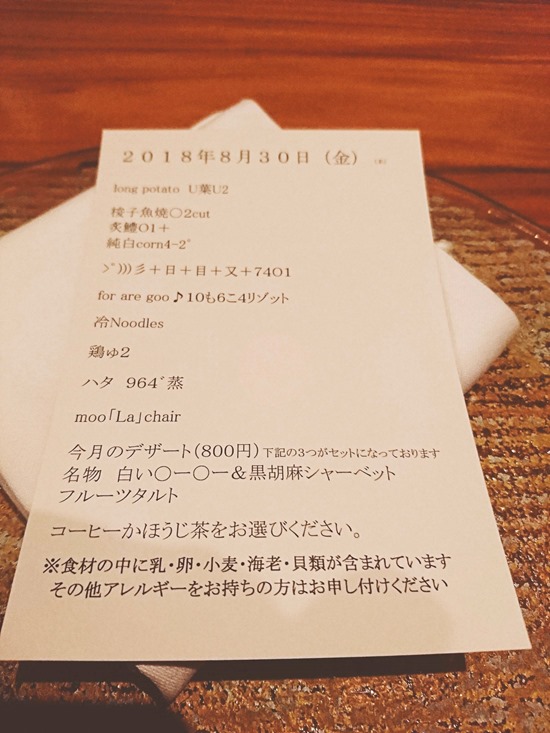 2018年8月30日(金)
long potato U葉U2
梭子魚焼○2cut
炙鱧O1+
純白corn4-2゜
>゜)))彡+日+目+又+74O1
for are goo♪10も6こ4リゾット
冷Noodles
鶏ゅ2
ハタ 964゛蒸
moo「La」chair
今月のデザート(800円)下記の3つがセットになっております
名物 白い○ー○ー&黒胡麻シャーベット
フルーツタルト
コーヒーかほうじ茶をお選びください。
※食材の中に乳・卵・小麦・海老・貝類が含まれています
その他アレルギーをお持ちの方はお申し付けください